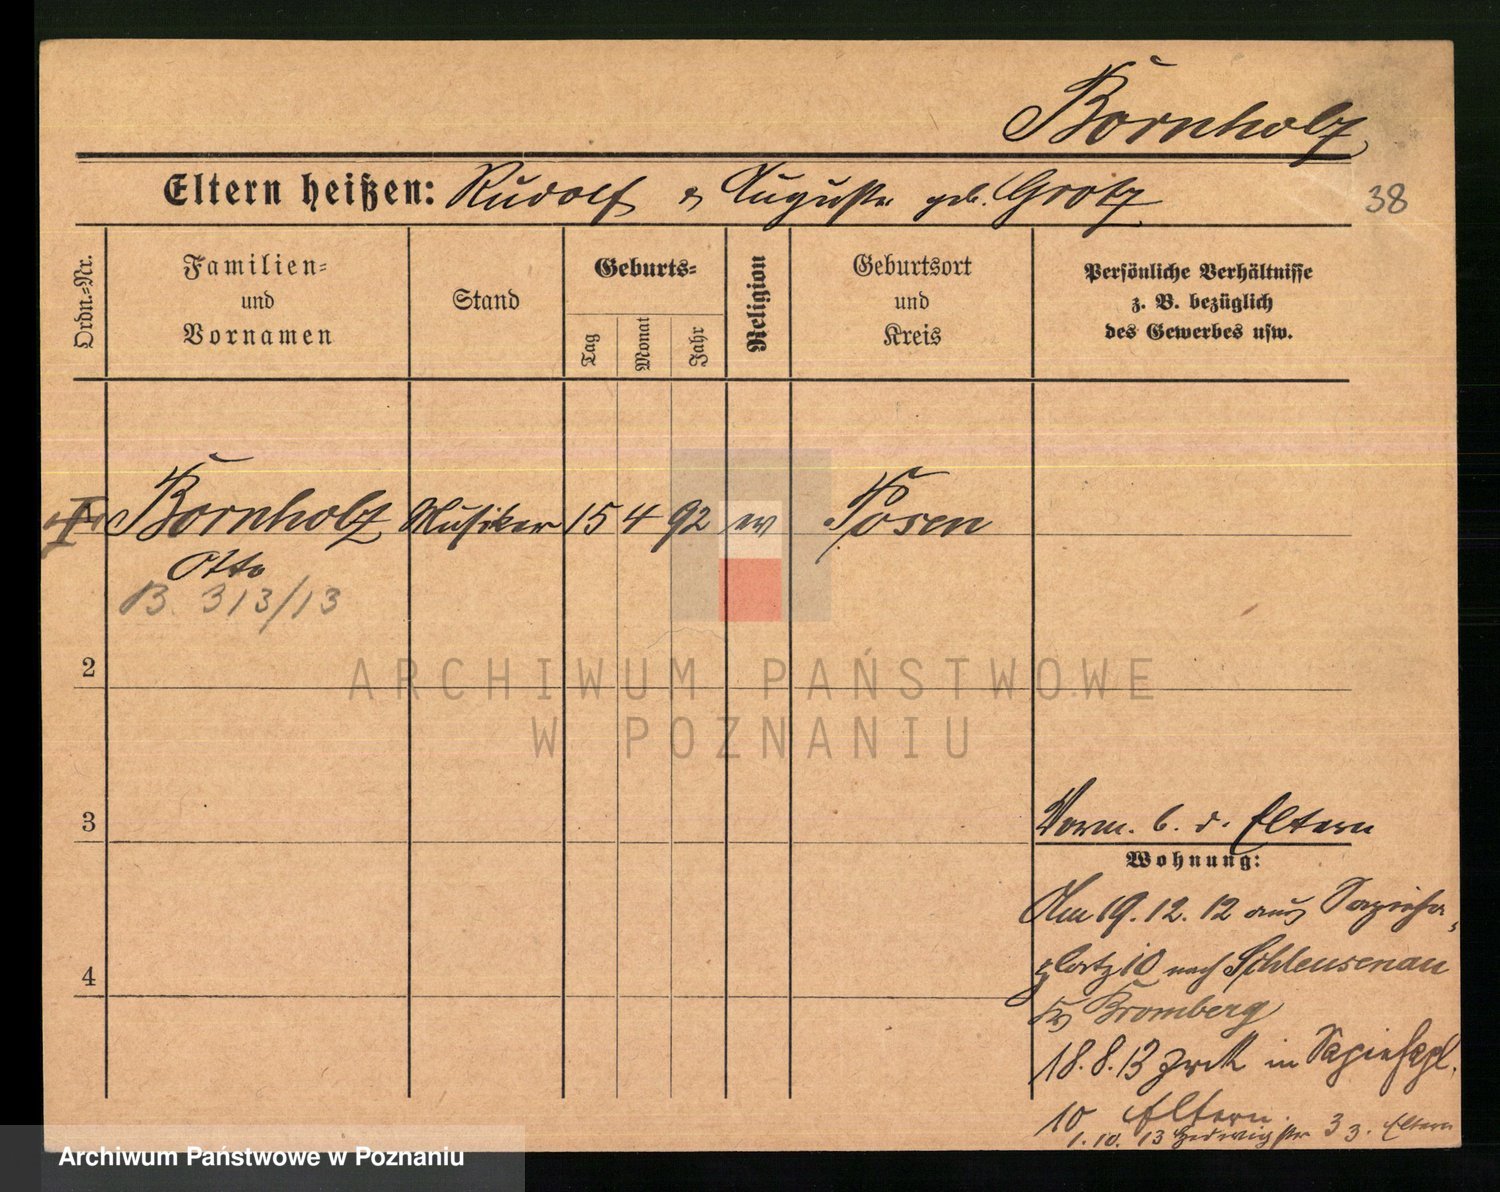 Bornholz
Eltern heißen: Rudolf & Auguste geb. Grotz
38
Ordn.=Nr.
Familien=
und
Vornamen
Stand
Geburts=
Tag
Monat
Jahr
Religion
Geburtsort
und
Kreis
Persönliche Verhältnisse
z. B. bezüglich
des Gewerbes usw.
I Bornholz Musiker 15 4 92 ev Posen
Otto
B. 313/13
2
ARCHIWUM PAŃSTWOWE
W POZNANIU
3
Vorm. b. d. Eltern
Wohnung:
Am 19.12.12 aus Sapieha
platz 10 nach Schleusenau
4
Kr Bromberg
18.8.13 zrck in Sapiehapl.
10 Eltern.
1.10.13 Hedwigstr 33. Eltern
Archiwum Państwowe w Poznaniu